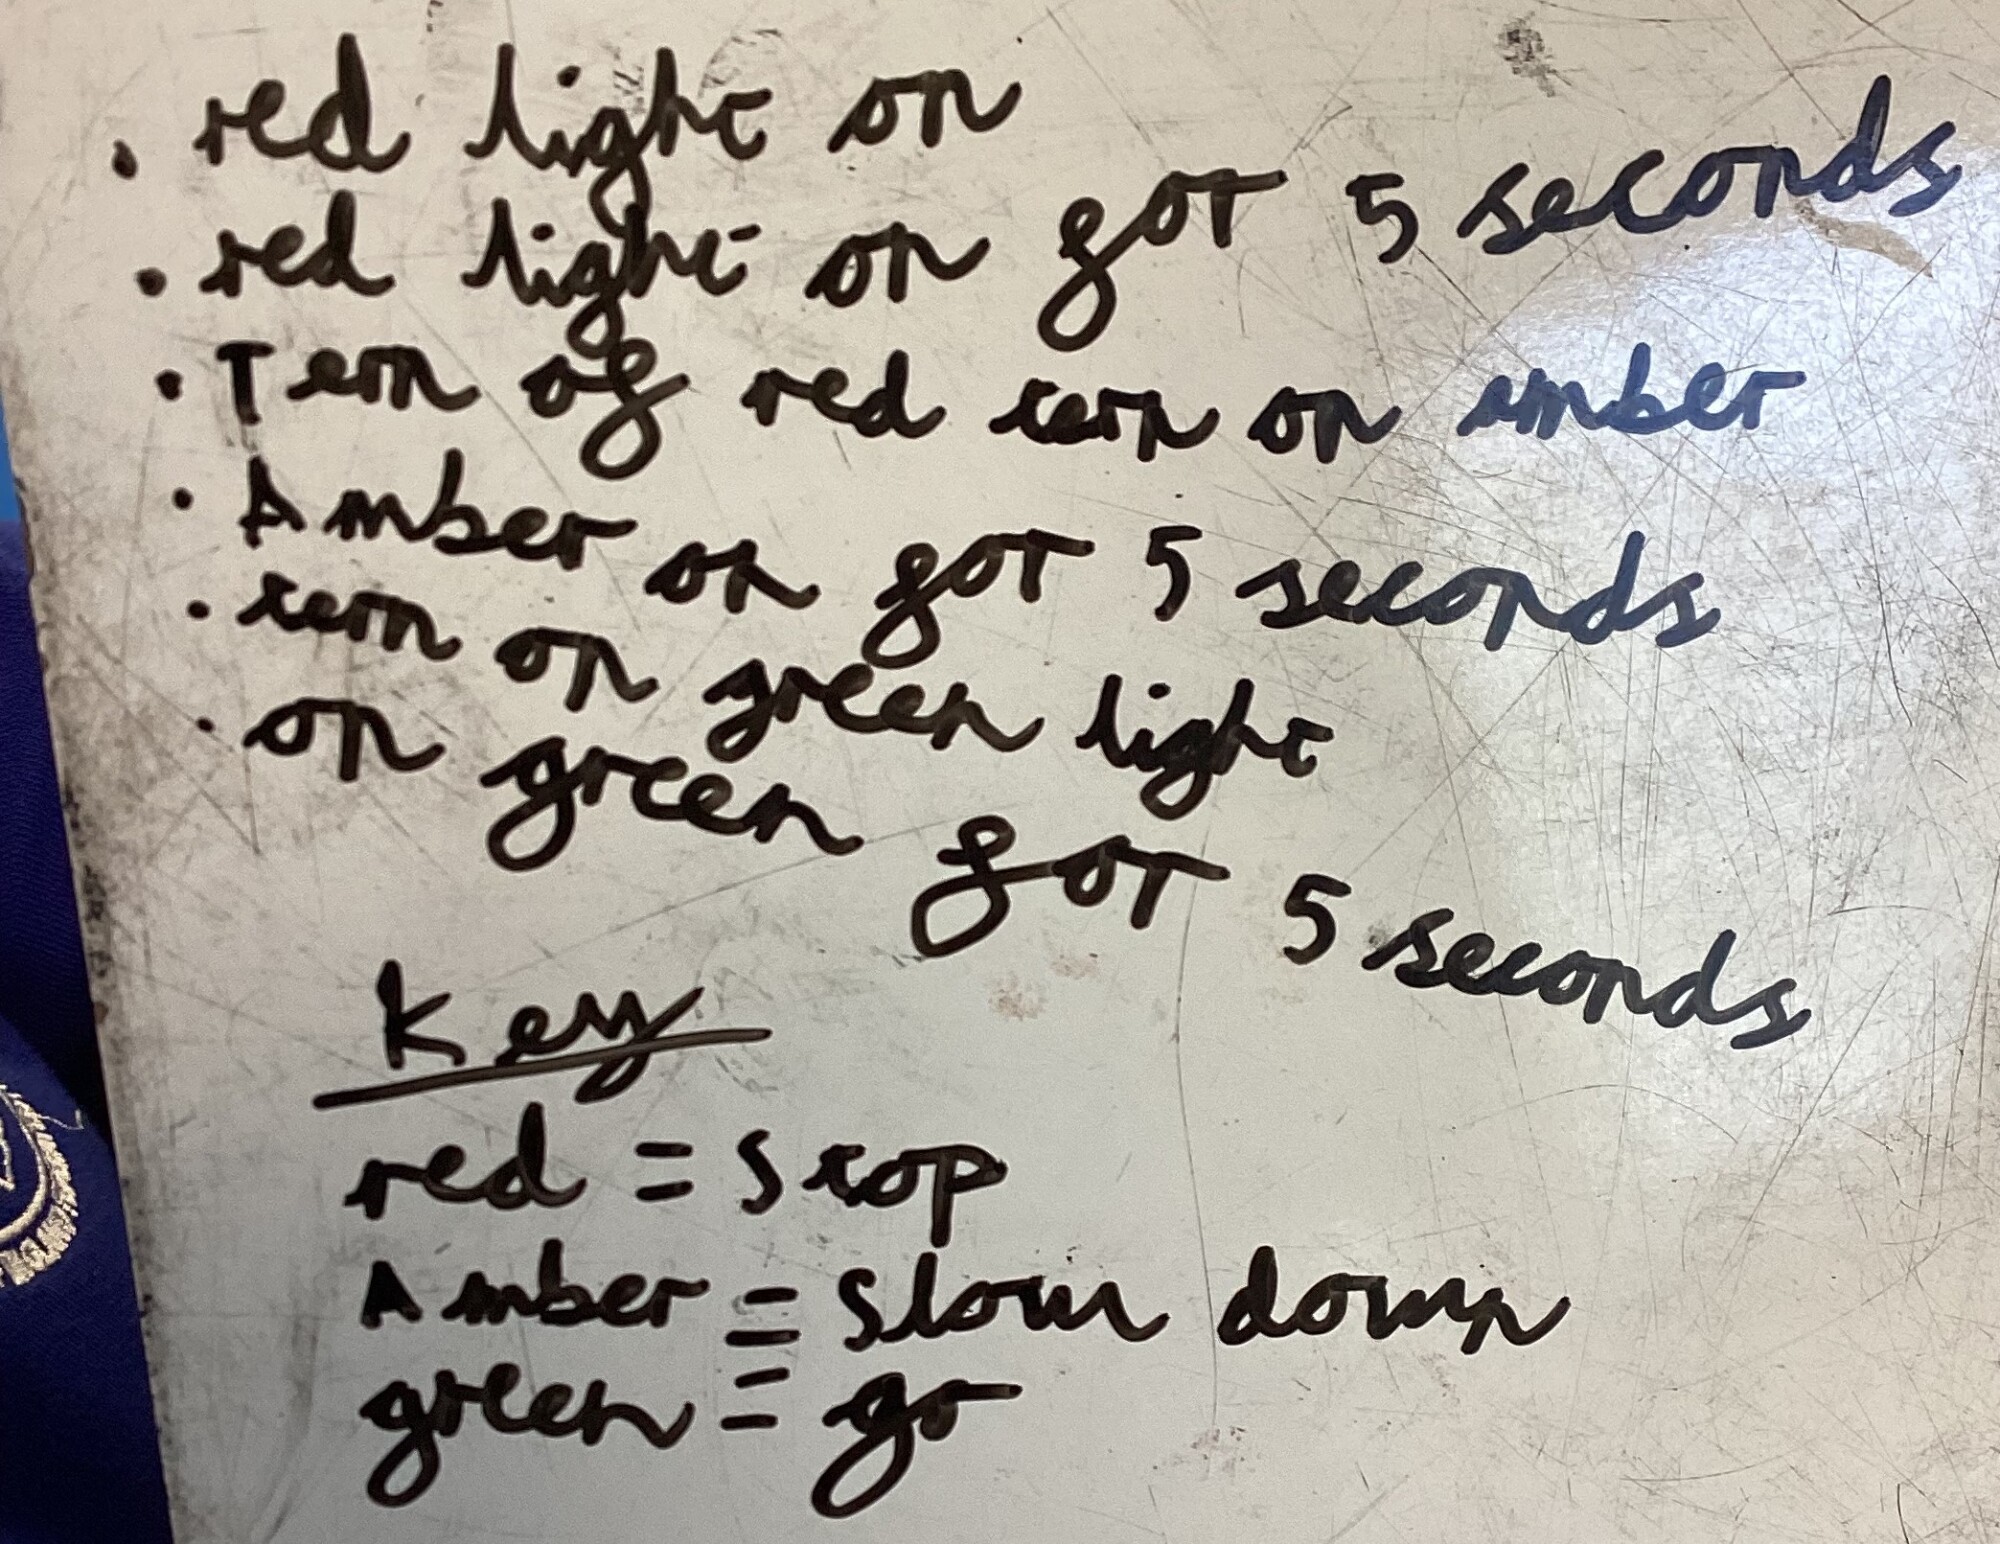 . red light on
. red light on for 5 seconds
. Tern of red tern on amber
. Amber on for 5 seconds
. tern on green light
. on green for 5 seconds
Key
red = Stop
Amber = Slow down
green = go